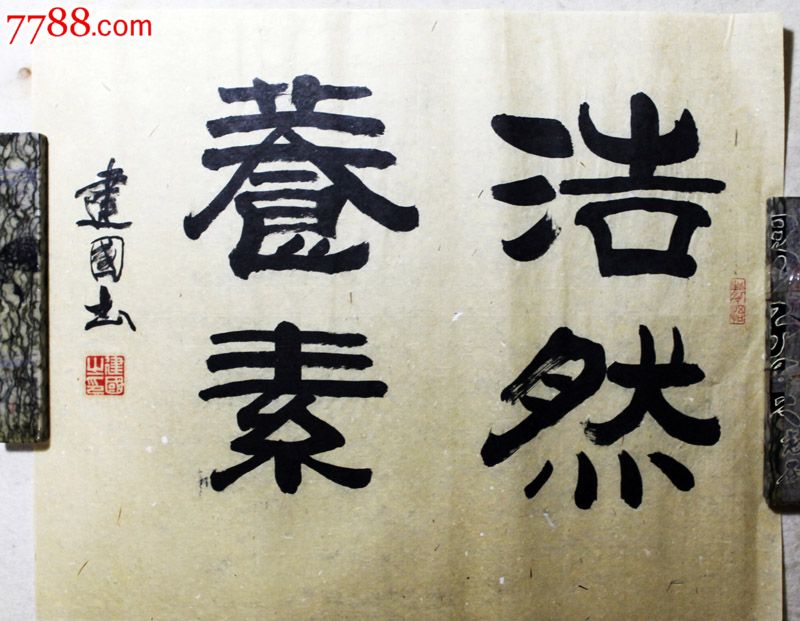 7788.com
浩然
養素
建國书
建國之印